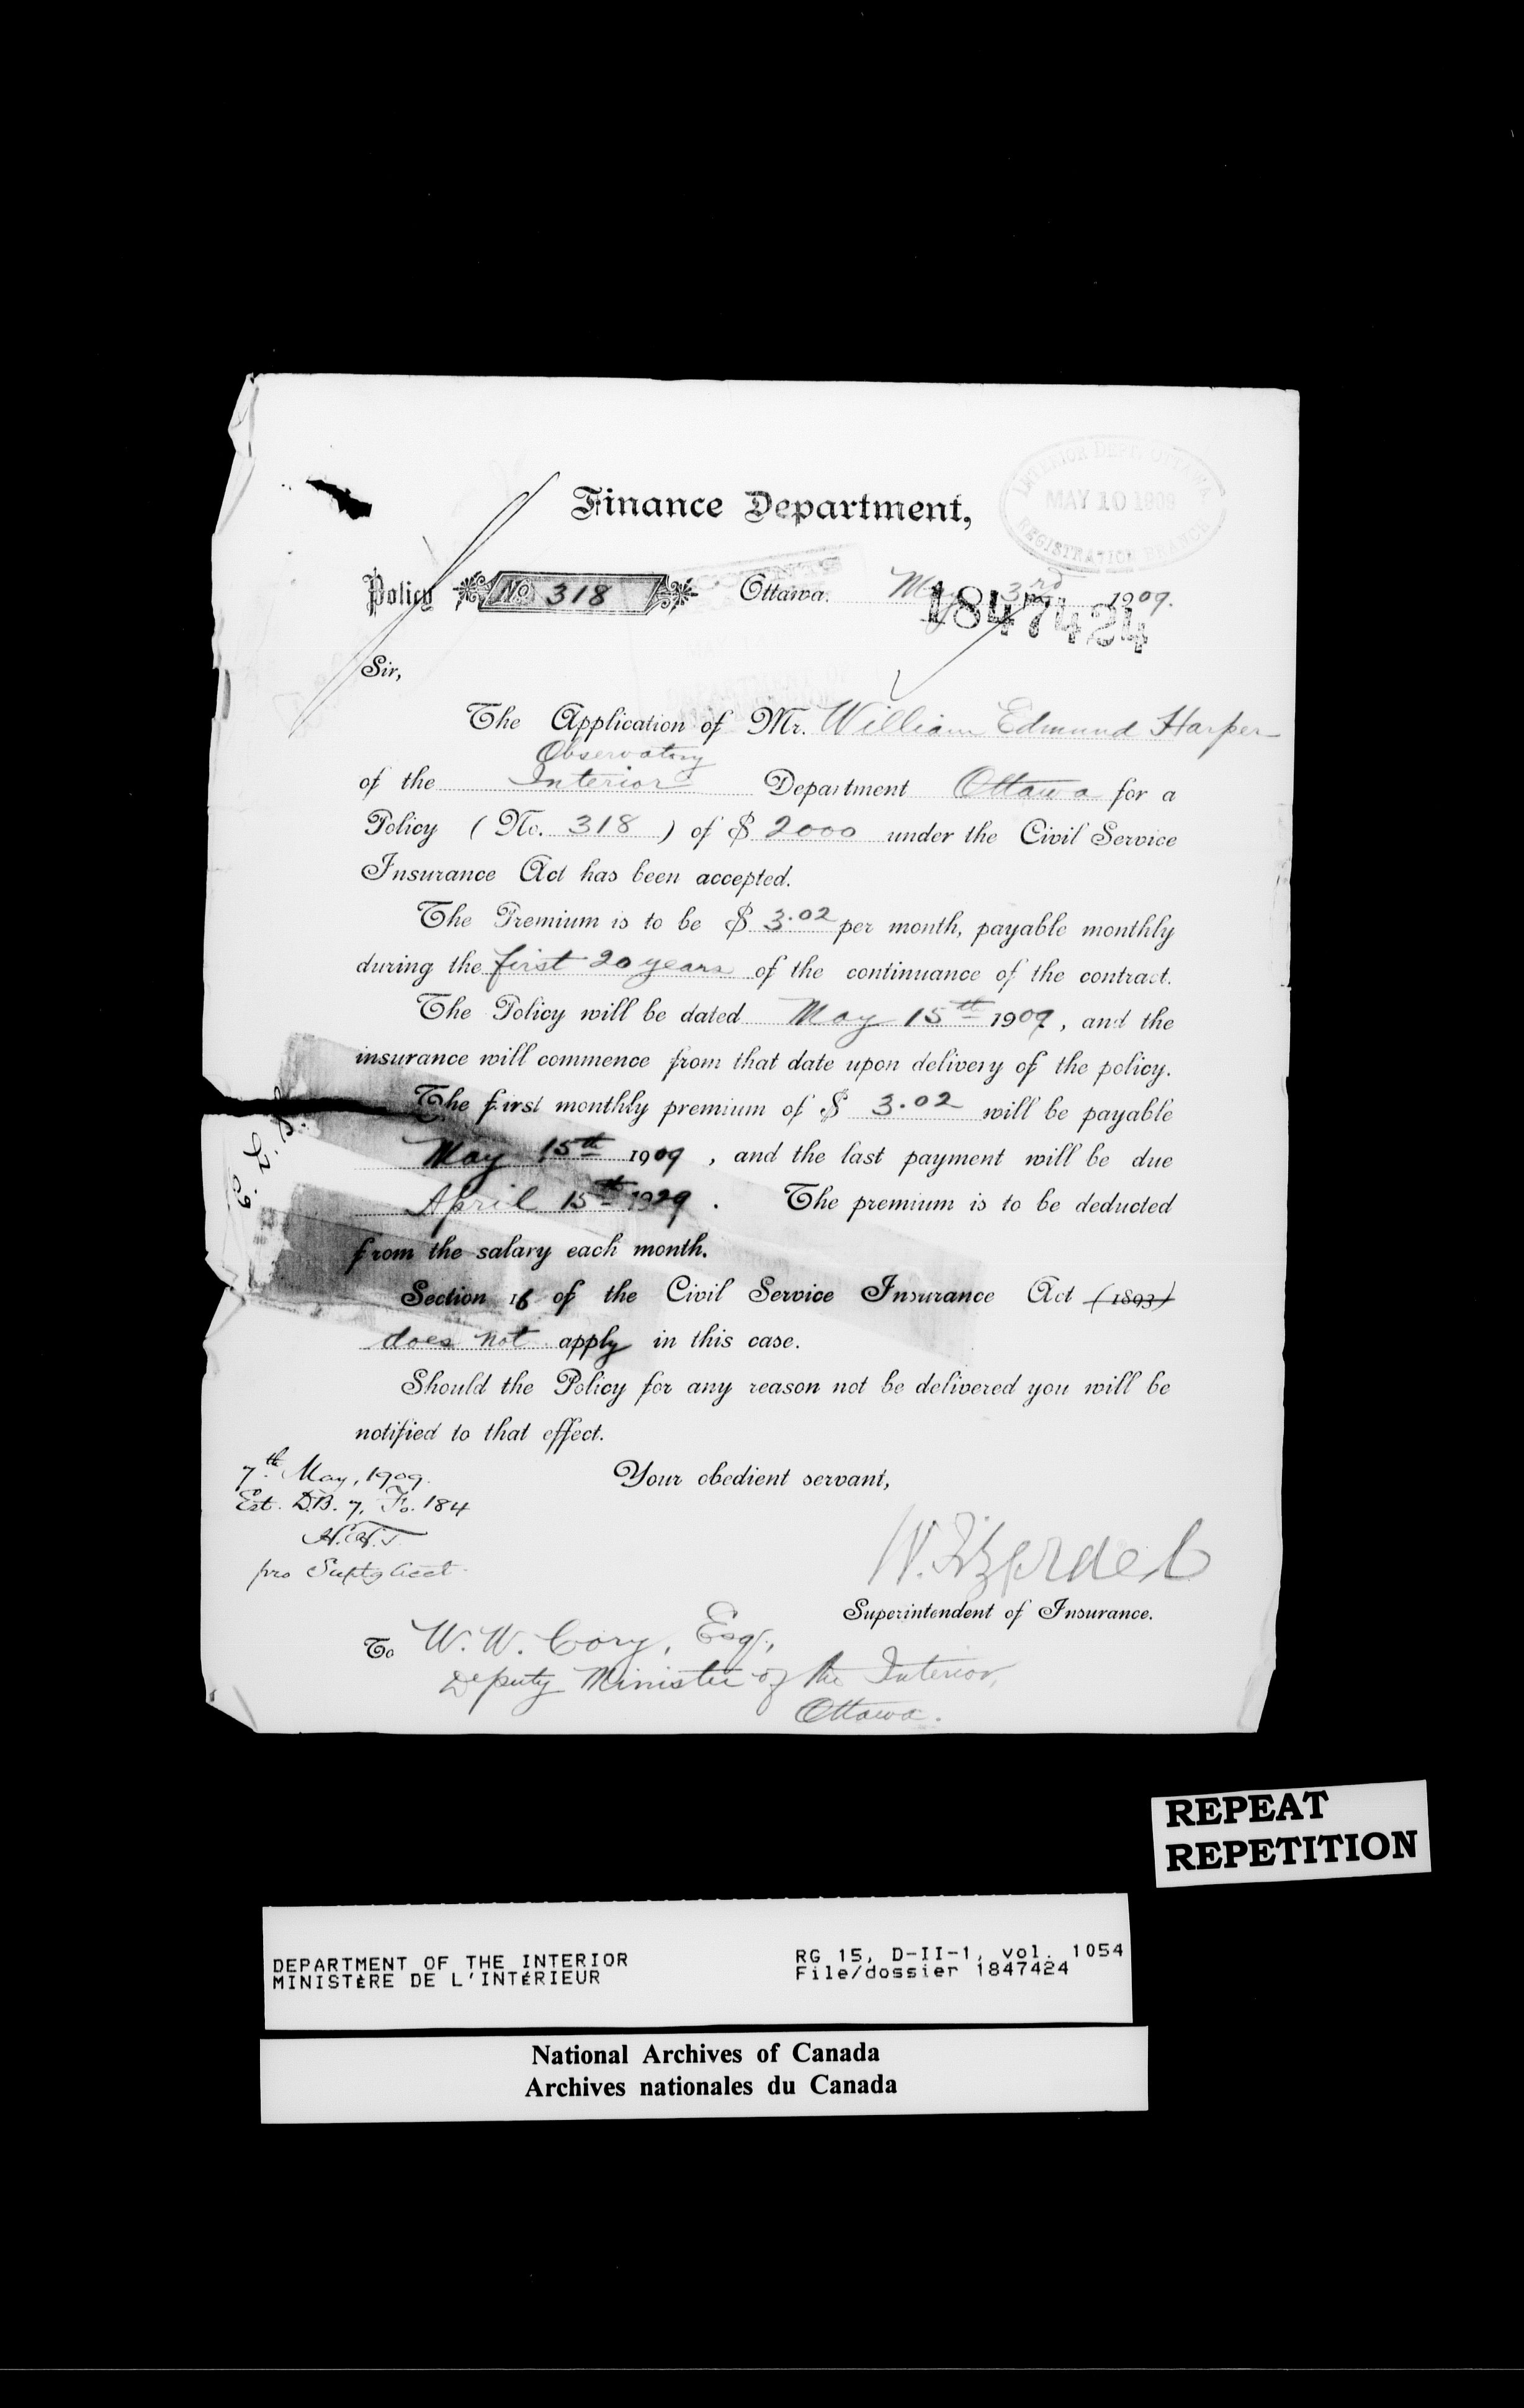 INTERIOR DEPT. OTTAWA
MAY 10 1909
REGISTRATION BRANCH
Finance Department,
Policy No. 318 Ottawa. May 3rd 1909.
1847424
Sir,
The Application of Mr. William Edmund Harper
Observatory
of the Interior Department Ottawa for a
Policy (No. 318) of $ 2000 under the Civil Service
Insurance Act has been accepted.
The Premium is to be $ 3.02 per month, payable monthly
during the first 20 years of the continuance of the contract.
The Policy will be dated May 15th 1909, and the
insurance will commence from that date upon delivery of the policy.
The first monthly premium of $ 3.02 will be payable
May 15th 1909, and the last payment will be due
April 15th 1929. The premium is to be deducted
from the salary each month.
Section 16 of the Civil Service Insurance Act (1893)
does not apply in this case.
Should the Policy for any reason not be delivered you will be
notified to that effect.
7th May, 1909.
Your obedient servant,
Ext. D.B. 7, Fo. 184
pro Supt of Acct.
Superintendent of Insurance.
To W. W. Cory, Esq.,
Deputy Minister of the Interior,
Ottawa.
REPEAT
REPETITION
DEPARTMENT OF THE INTERIOR RG 15, D-II-1, vol. 1054
MINISTÈRE DE L'INTÉRIEUR File/dossier 1847424
National Archives of Canada
Archives nationales du Canada